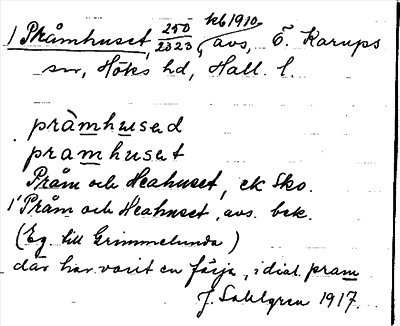 kb 1910.
1 Pråmhuset, 250/2023, avs, Ö. Karups
sn, Höks hd, Hall. l.
pråmhusəd
pramhusət
Pråm och Heahuset, ek Sko.
1 Pråm och Heahuset, avs. bek.
(Eg. till Grimmelunda)
där har varit en färja, i dial. pram
J. Sahlgren 1917.